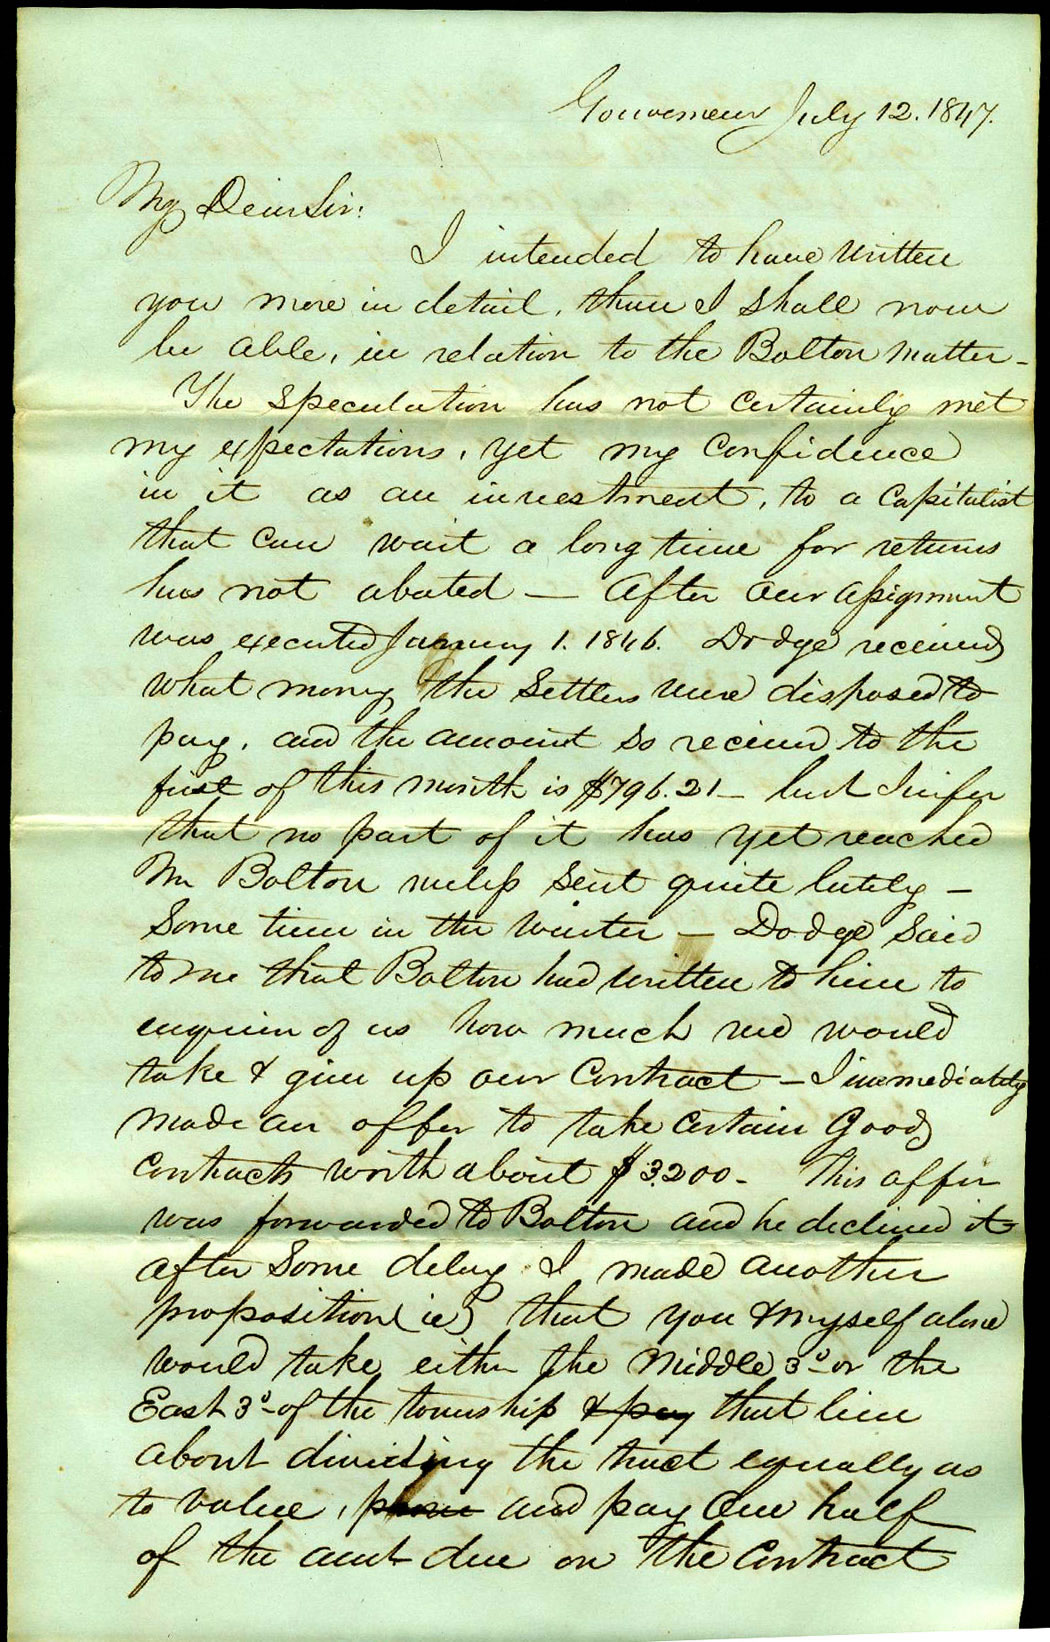 Gouverneur July 12. 1847.
My Dear Sir:
I intended to have written
you more in detail, than I shall now
be able, in relation to the Bolton matter –
The speculation has not certainly met
my expectations, yet my confidence
in it as an investment, to a capitalist
that can wait a long time for returns
has not abated — After our assignment
was executed January 1. 1846. Dodge received
what money the settlers were disposed to
pay, and the amount so received to the
first of this month is $796.21 – but I infer
that no part of it has yet reached
Mr Bolton unless sent quite lately –
Some time in the winter – Dodge said
to me that Bolton had written to him to
enquire of us how much we would
take & give up our Contract – I immediately
made an offer to take certain Good
contracts worth about $3.200 – This offer
was forwarded to Bolton and he declined it
after some delay. I made another
proposition (ie) that you & myself alone
would take either the Middle 3d or the
East 3d of the township & pay that line
about dividing the tract equally as
to value, and pay One half
of the amt due on the Contract